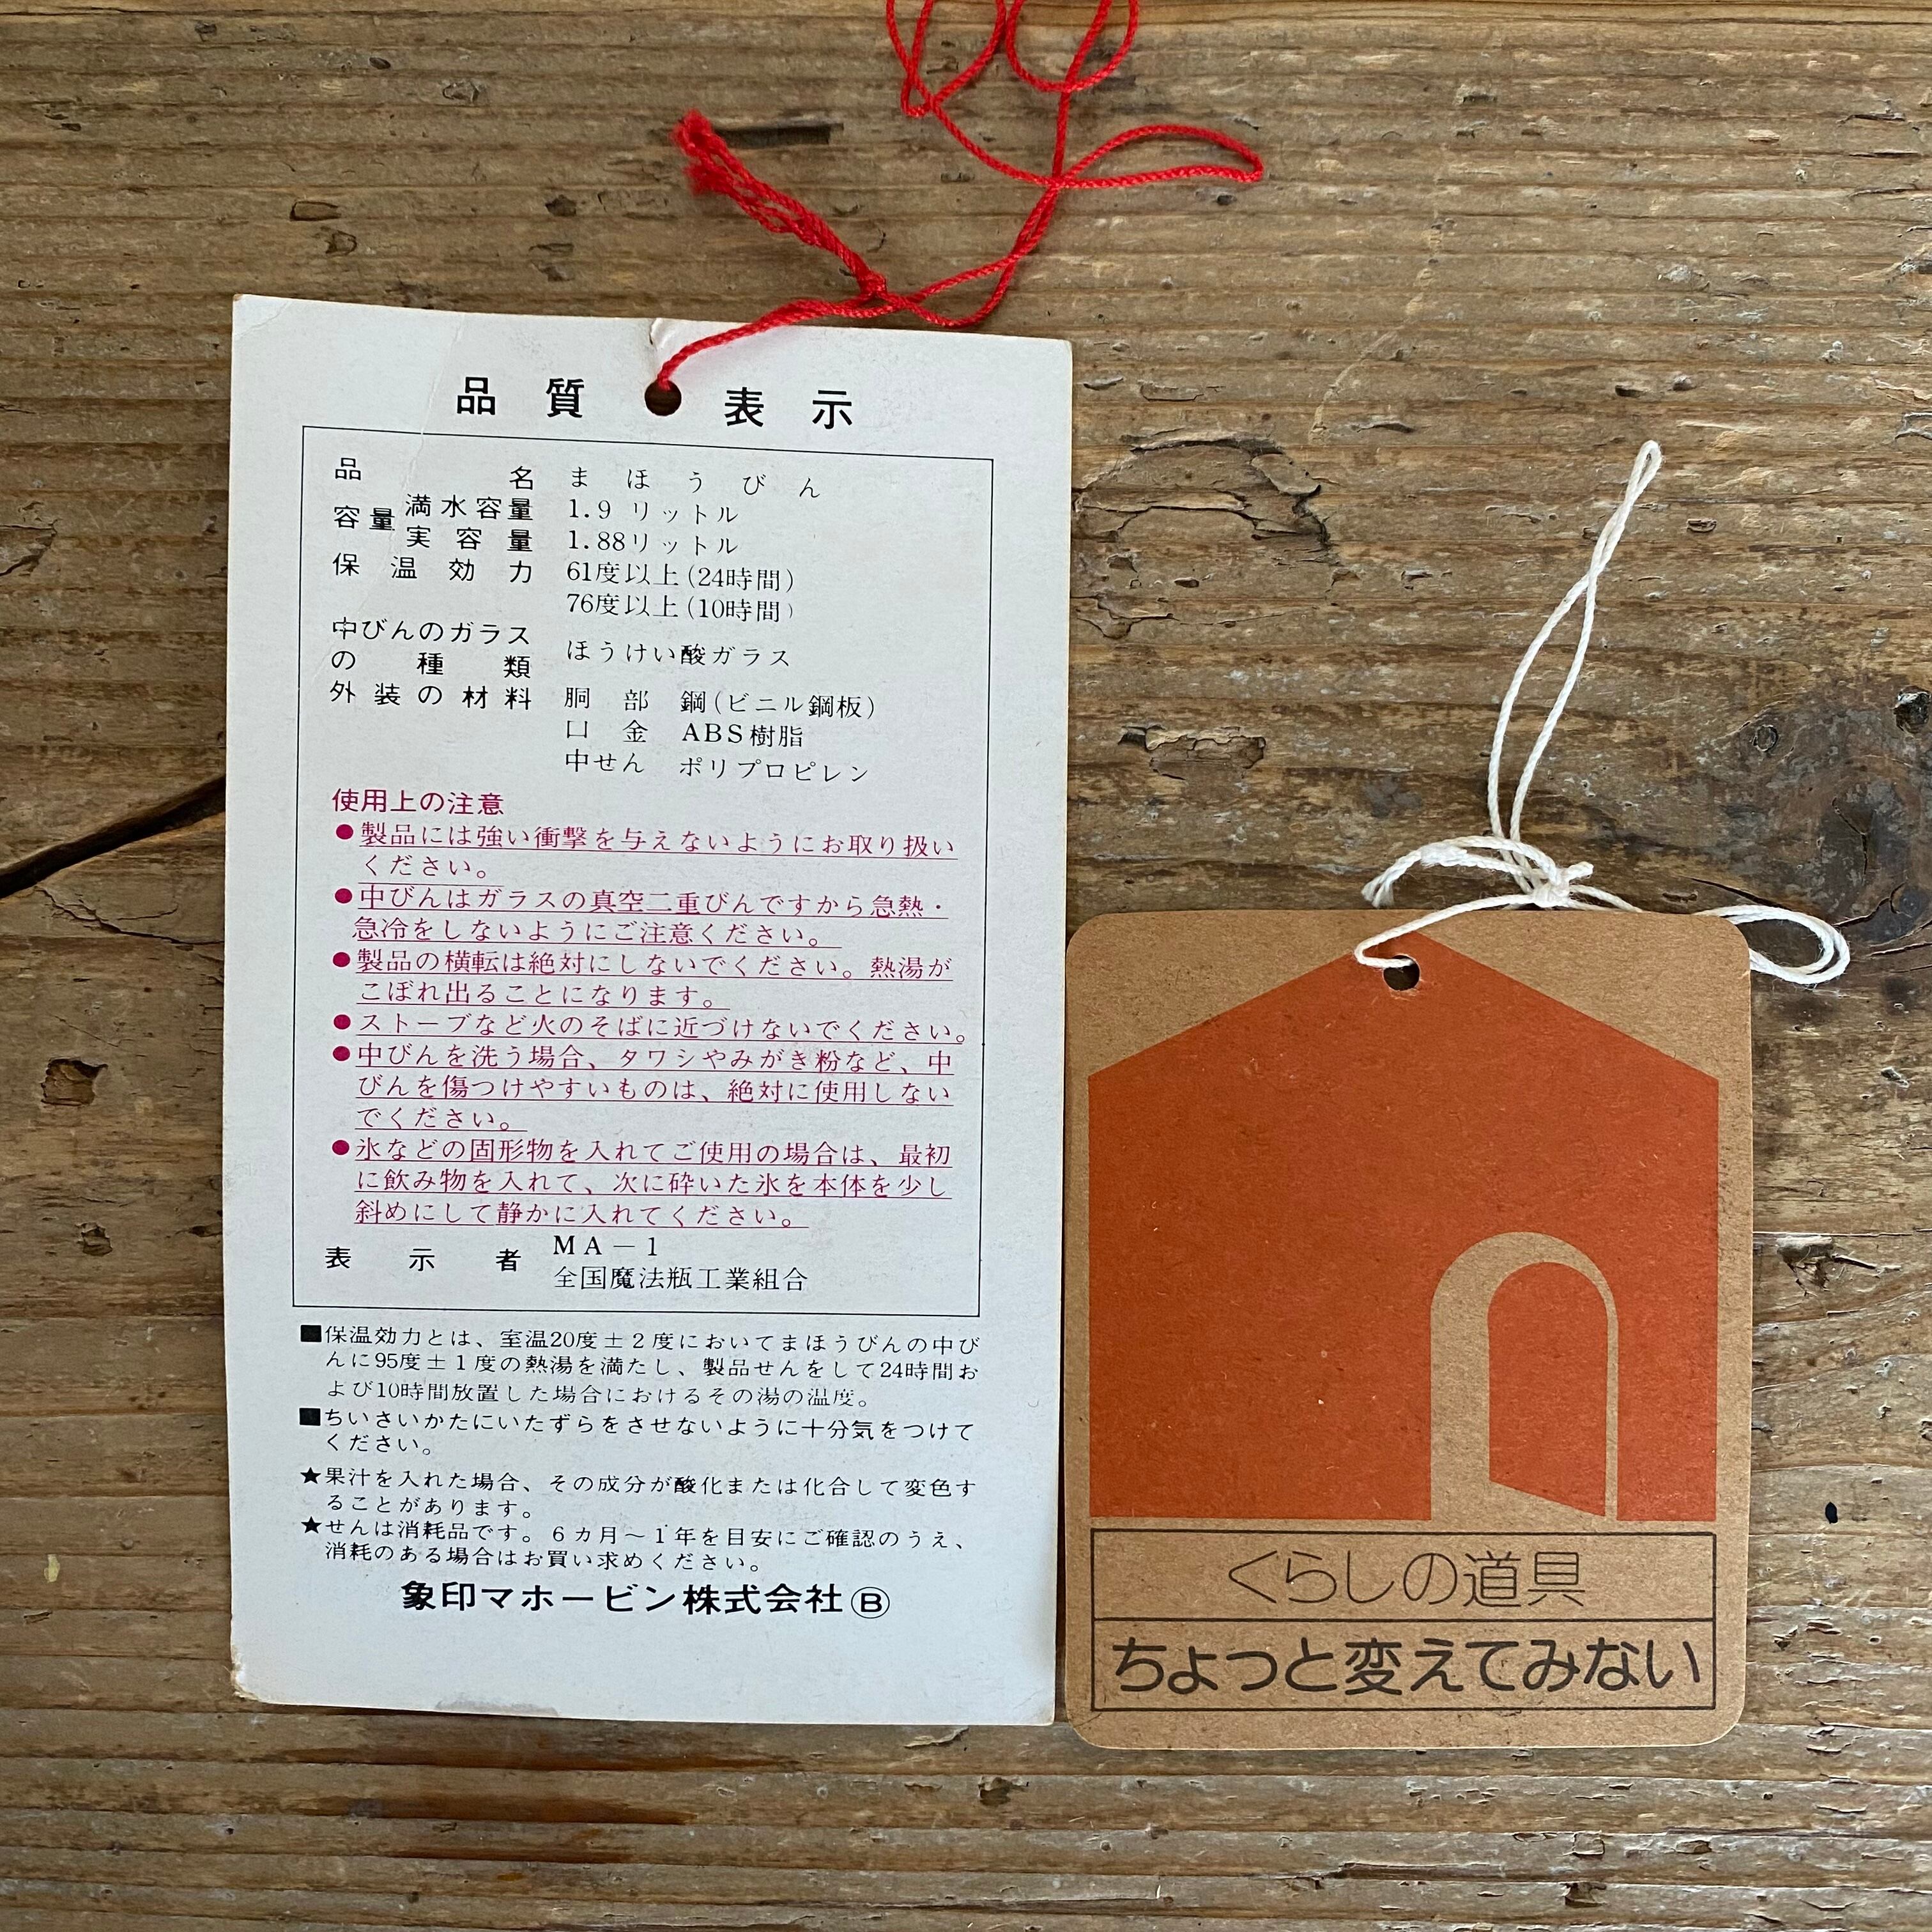 品質表示
品名 まほうびん
容量 満水容量 1.9リットル
実容量 1.88リットル
保温効力 61度以上(24時間)
76度以上(10時間)
中びんのガラス
の種類 ほうけい酸ガラス
外装の材料 胴部 鋼(ビニル鋼板)
口金 ABS樹脂
中せん ポリプロピレン
使用上の注意
●製品には強い衝撃を与えないようにお取り扱い
ください。
●中びんはガラスの真空二重びんですから急熱・
急冷をしないようにご注意ください。
●製品の横転は絶対にしないでください。熱湯が
こぼれ出ることになります。
●ストーブなど火のそばに近づけないでください。
●中びんを洗う場合、タワシやみがき粉など、中
びんを傷つけやすいものは、絶対に使用しない
でください。
●氷などの固形物を入れてご使用の場合は、最初
に飲み物を入れて、次に砕いた氷を本体を少し
斜めにして静かに入れてください。
表示者 MA-1
全国魔法瓶工業組合
■保温効力とは、室温20度±2度においてまほうびんの中び
んに95度±1度の熱湯を満たし、製品せんをして24時間お
よび10時間放置した場合におけるその湯の温度。
■ちいさいかたにいたずらをさせないように十分気をつけて
ください。
★果汁を入れた場合、その成分が酸化または化合して変色す
ることがあります。
★せんは消耗品です。6カ月〜1年を目安にご確認のうえ、
消耗のある場合はお買い求めください。
象印マホービン株式会社Ⓑ
くらしの道具
ちょっと変えてみない